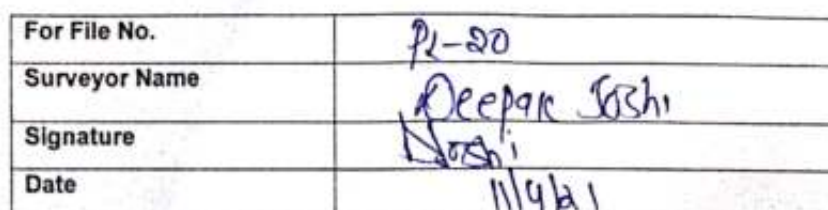 For File No. PL-20
Surveyor Name Deepak Joshi
Signature
Date 11/9/21